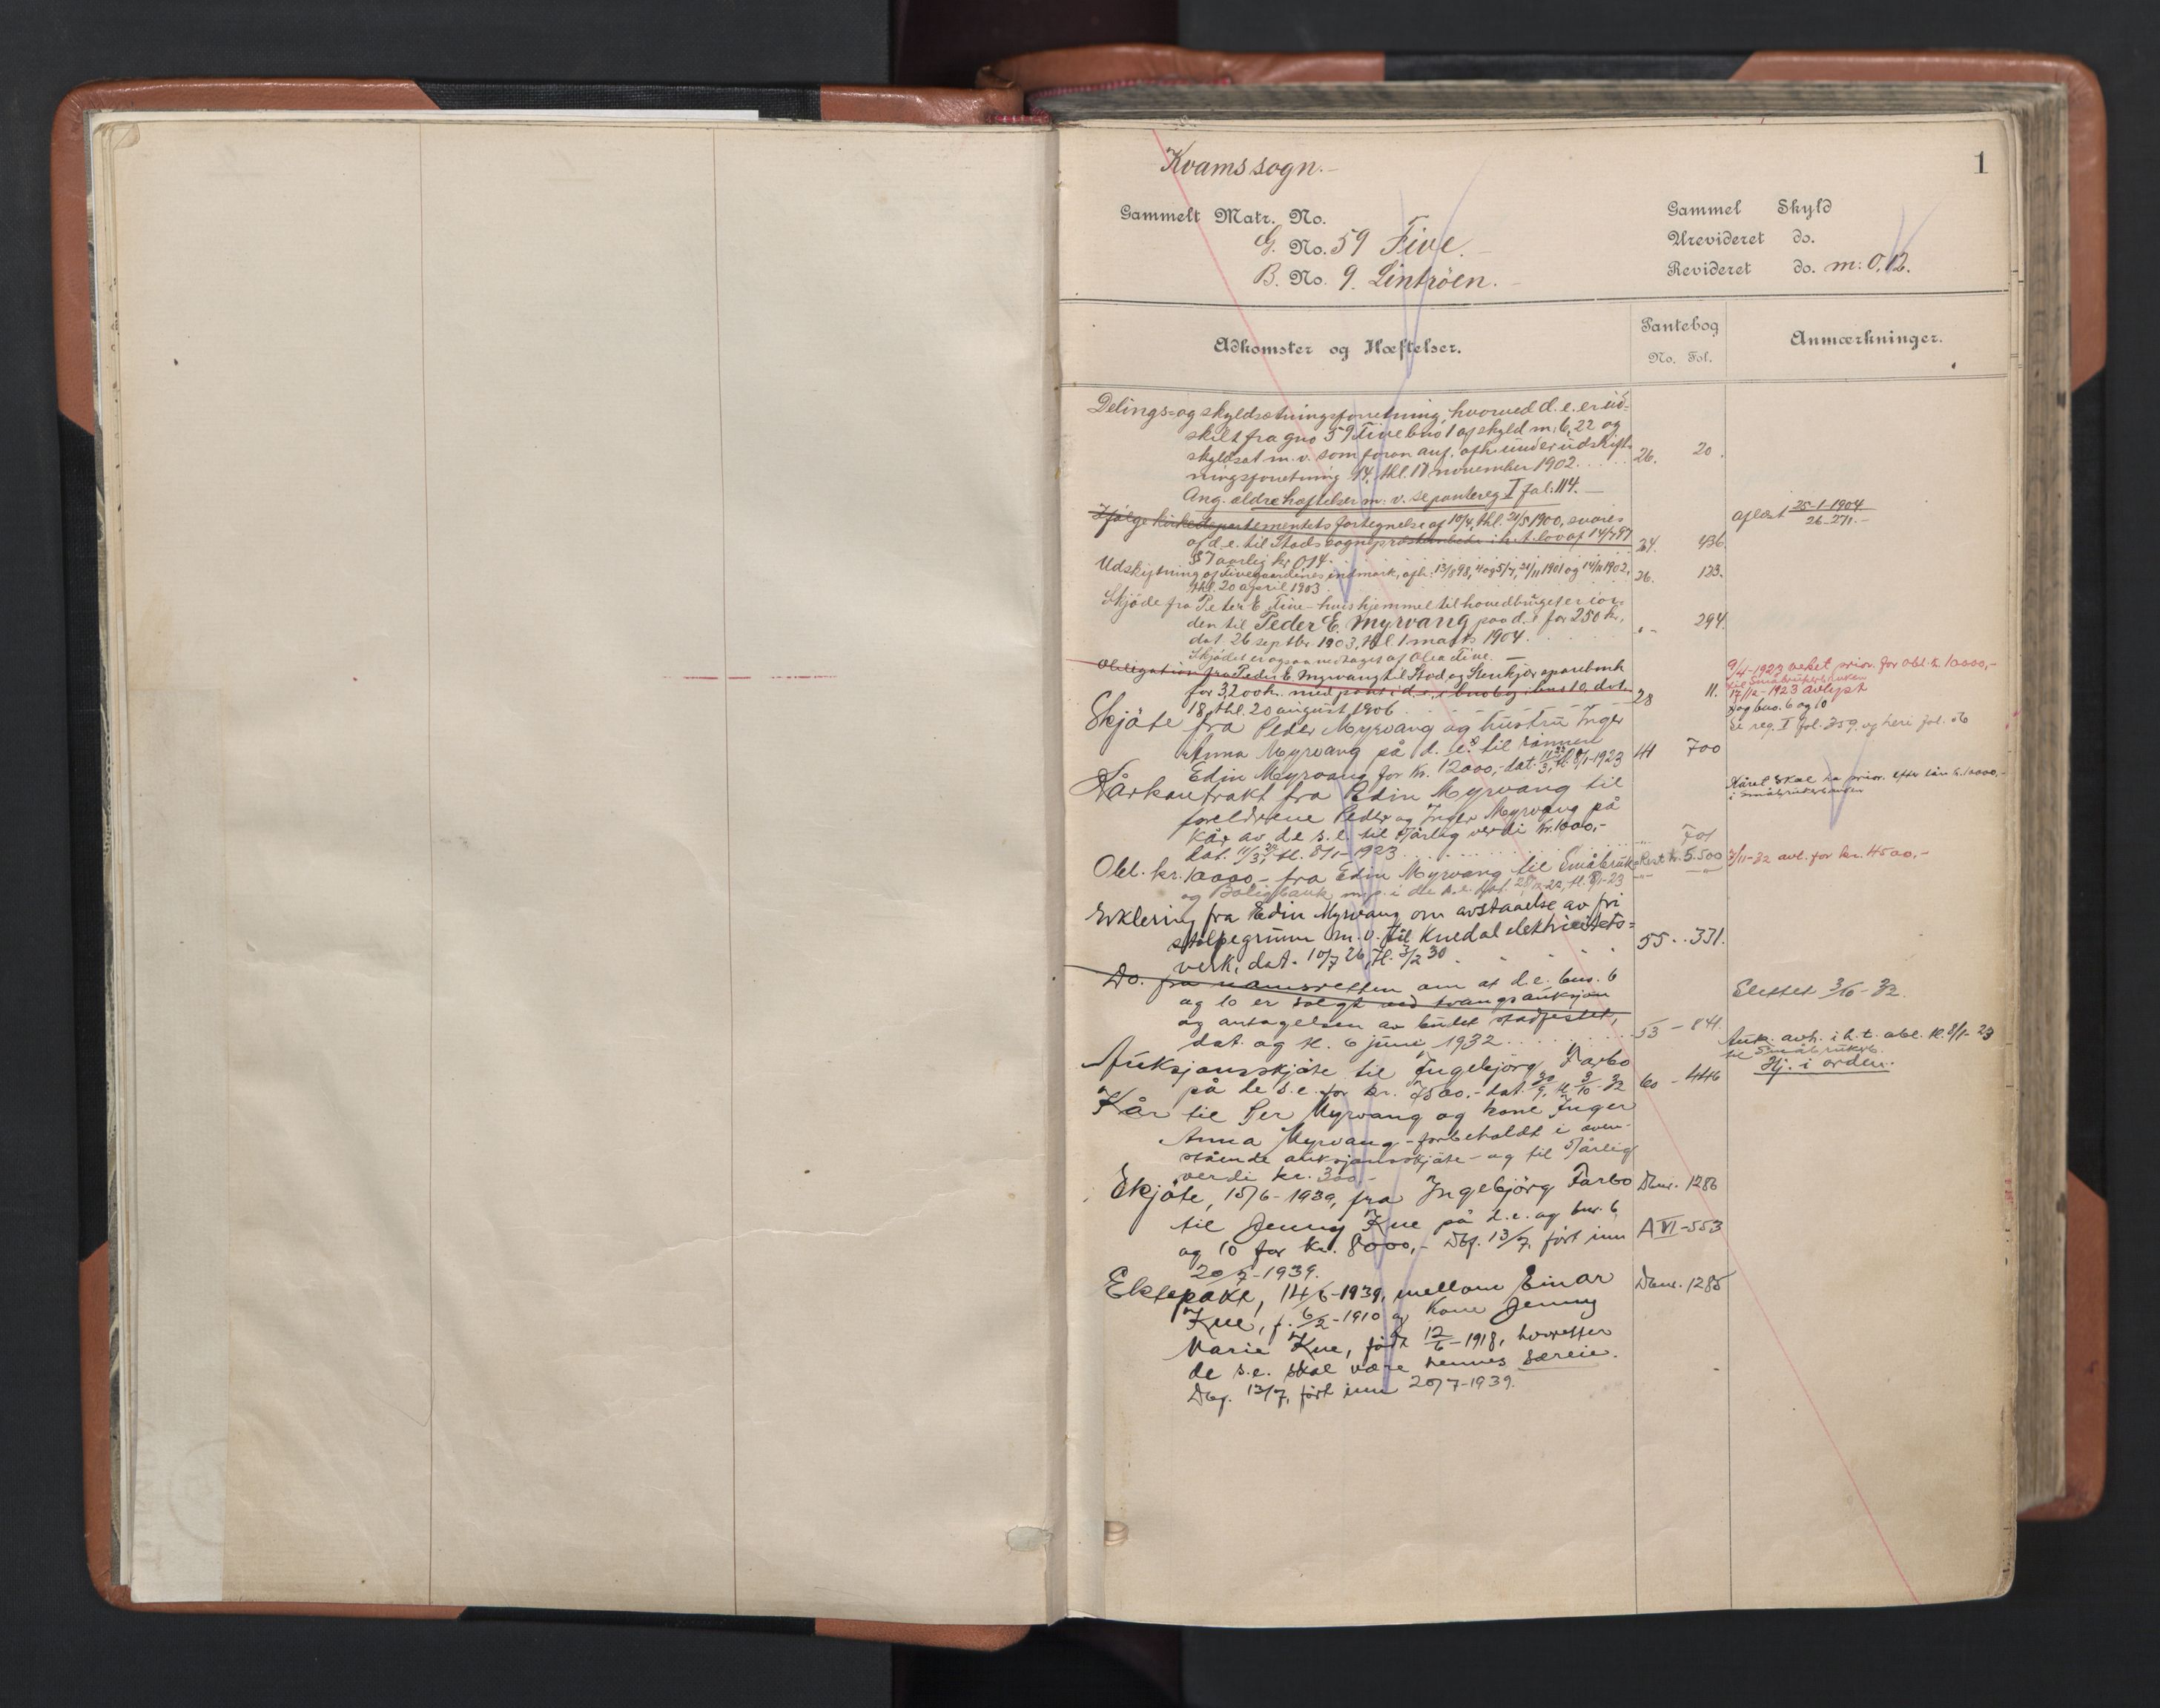 1
Kvams sogn.
Gammelt Matr. No.
G. No. 59 Five.
B. No. 9. Lintröen.
Gammel Skyld
Urevideret do.
Revideret do. m: 0,12.
Adkomster og Hæftelser.
Pantebog
No. Fol.
Anmærkninger.
Delings- og skyldsætningsforretning, hvorved d. e. er ud-
skilt fra gno 59 Five bno 1 af skyld m. 6,22 og
skyldsat m. v. som foran anf. afh. under udskift-
ningsforretning 14, thl. 17 november 1902. 26. 20.
Ang. ældre hæftelser m. v. se pantereg I fol. 114.
Ifølge Kirkedepartementets fortegnelse af 10/4, thl. 21/5 1900, svares
af d. e. til Stods sogneprestembede i h. t. lov af 14/7 97 24. 436.
§ 7 aarlig kr 0,14.
aflæst 25-1-1904
26-271.
Udskiftning af Fivegaardenes indmark, afh. 13/8 98, 4 og 5/7, 21/11 1901 og 14/11 1902, 26. 123.
thl. 20 april 1903
Skjöde fra Peter E. Five - hvis hjemmel til hovedbruget er i or-
den til Peder E. Myrvang paa d. e. for 250 kr,
dat. 26 septbr 1903, thl. 1 marts 1904. 294.
Skjödet er ogsaa vedtaget af Olea Five.
Obligation fra Peder E. Myrvang til Stod og Stenkjær sparebank
for 3,200 kr. med pant i d. e., bno 6 og dat.
18, thl. 20 august 1906 28 11.
9/4-1923 veket prior. for obl. kr. 10000,-
til Småbrukerbanken
17/12-1923 avlyst
og bno. 6 og 10
Se reg. I fol. 359 og heri fol. 56
Skjöte fra Peder Myrvang og hustru Inger
Anna Myrvang på d. e. til sönnen
Edin Myrvang for kr. 12000,- dat. tl. 8/1-1923 41 700
Kårkontrakt fra Edin Myrvang til
foreldrene Peder og Inger Myrvang på
kår av de s. e. til 5 årlig verdi kr. 1000,-
dat. tl. 8/1-1923 701
Kåret skal ha prior. efter lån kr. 10000,-
i Småbrukerbanken
Obl. kr. 10000,- fra Edin Myrvang til Småbruk
og Boligbank m. p. i de s. e. dat. tl. 8/1-23
Rest kr. 5.500
7/11-32 avl. for kr. 4500,-
Erklering fra Edin Myrvang om avstaaelse av fri
stolpegrunn m. v. til Kuedal elektricitets-
verk, dat. 10/7 26, tl. 3/2 30 55. 331.
Do. fra namsretten om at d. e. bno. 6
og 10 er solgt ved tvangsauksjon
og antagelsen av budet stadfestet,
dat. og tl. 6 juni 1932 53 - 841.
Slettet 3/10-32.
Auksjonsskjöte til Ingebjörg Farbo
på de s. e. for kr. 7500.- dat. 30/9, tl. 3/10-32 60 - 446
Auk. avh. i h. t. obl. tl. 8/1-23
til Småbrukerb.
Hj. i orden.
Kår til Per Myrvang og kone Inger
Anna Myrvang - forbeholdt i oven-
stående auksjonsskjöte - og til 5 årlig
verdi kr. 300,-
Skjöte, 15/6-1939, fra Ingebjörg Farbo Dbnr. 1286
til Jenny Kne på d. e. og bnr. 6 A VI-553
og 10 for kr. 8000,- Dbf. 13/7, fört inn
20/7-1939.
Ektepakt, 14/6-1939, mellom Einar Dbnr. 1285
Kne, f. 6/2-1910 og kone Jenny
Marie Kne, födt 12/6-1918, hvorefter
de s. e. skal være hennes særeie.
Dbf. 13/7, fört inn 20/7-1939.